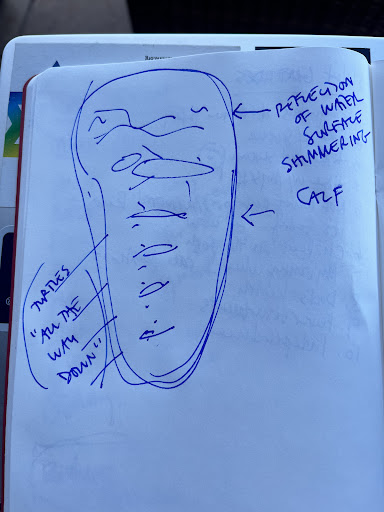 REFLECTION
OF WATER
SURFACE
SHIMMERING
CALF
TURTLES
"ALL THE
WAY
DOWN"